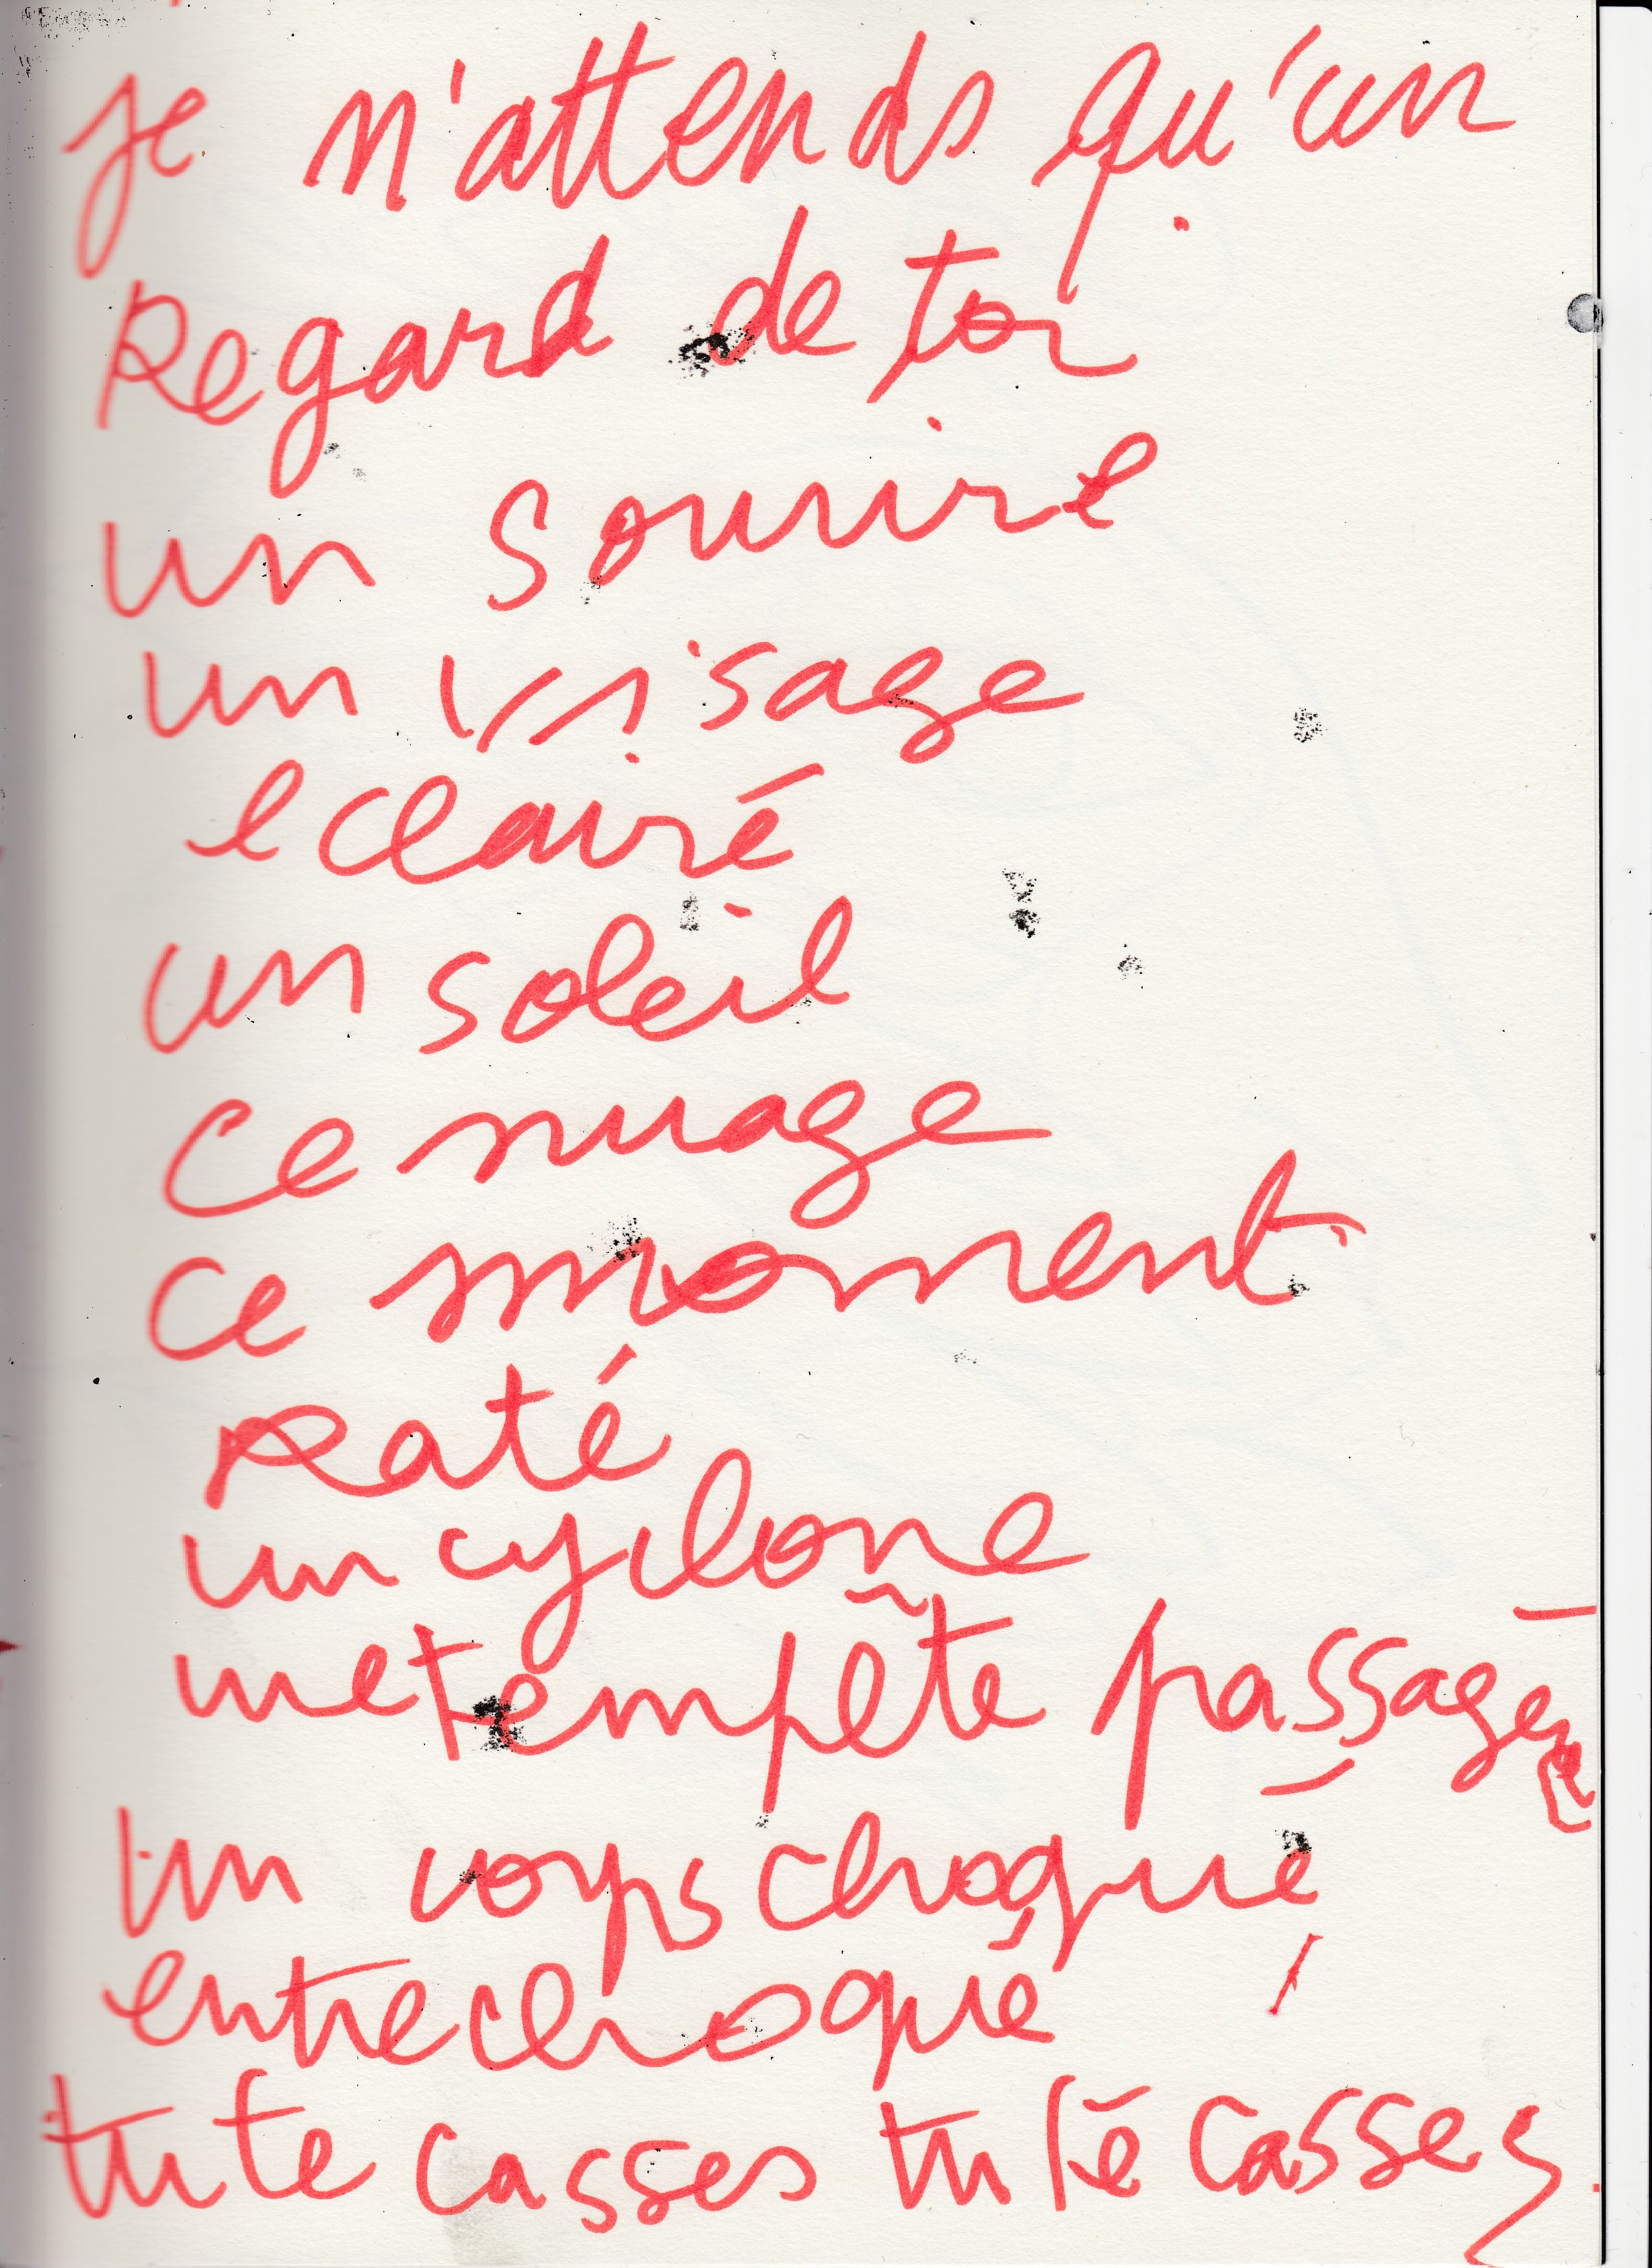 je n'attends qu'un
Regard de toi
un sourire
un visage
eclairé
un soleil
Ce nuage
Ce moment
Raté
un cyclone
une tempête passagère
un corps choqué
entrechoqué
tu te casses tu te casses